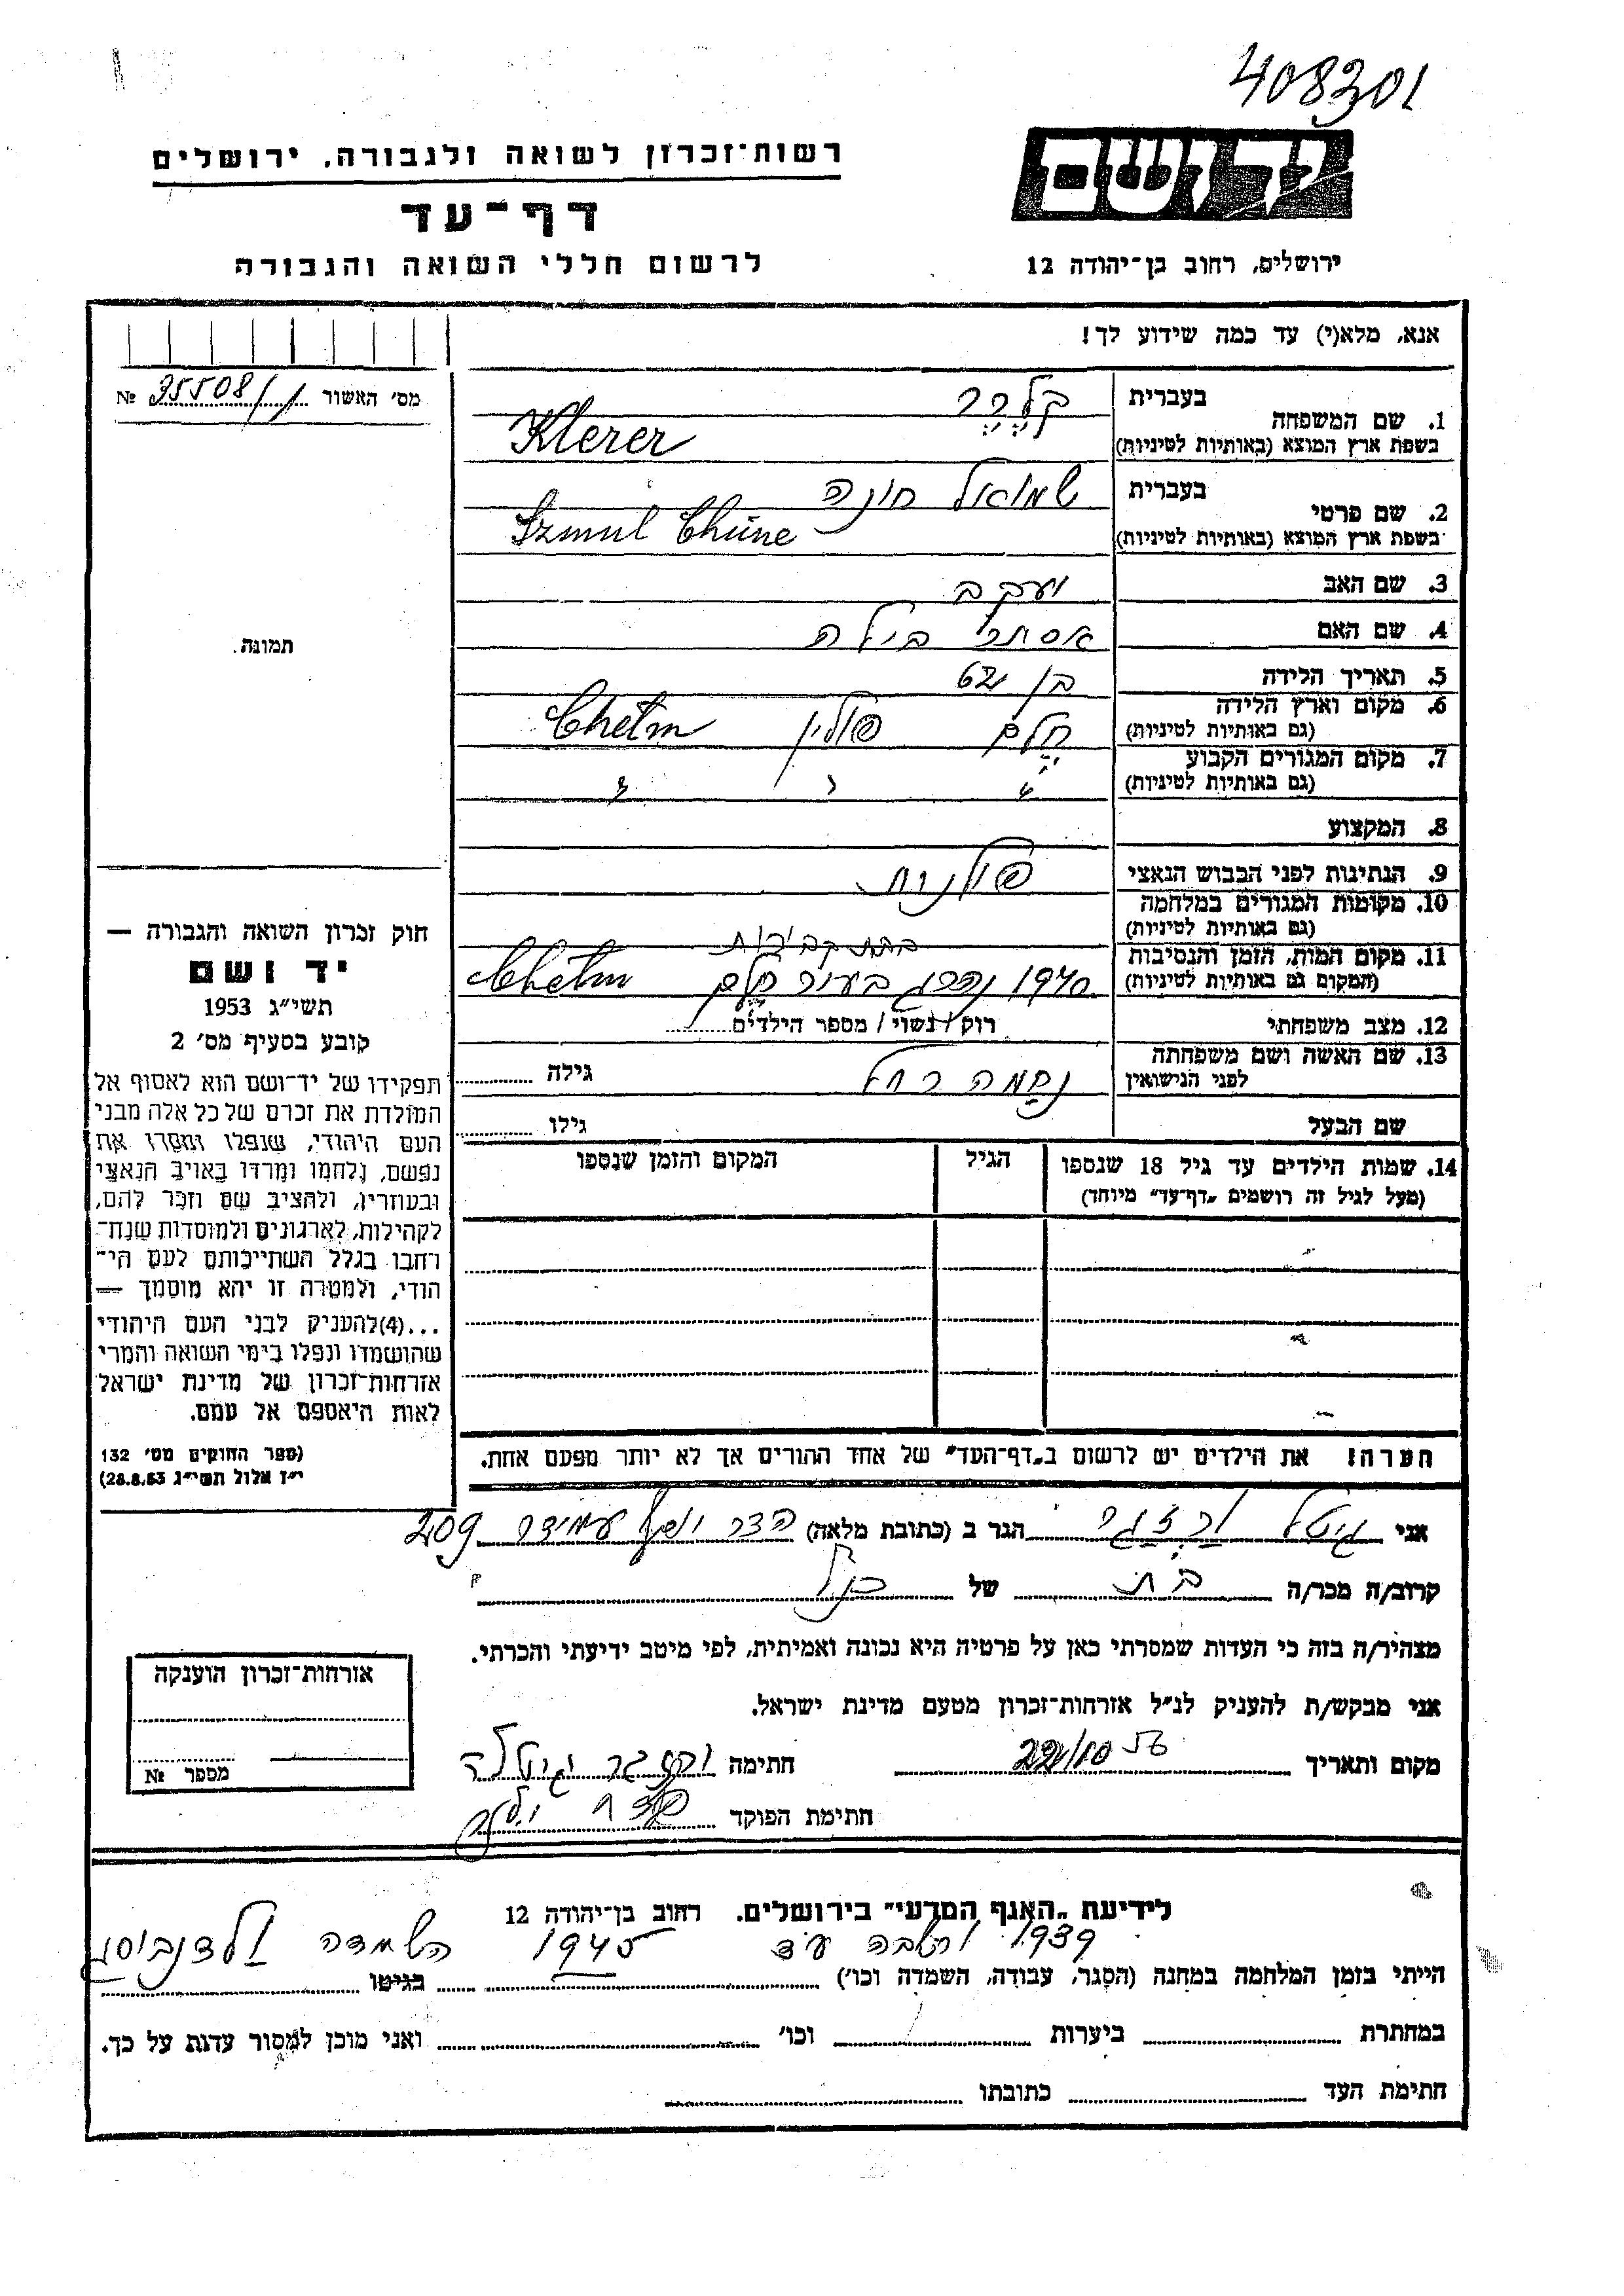 408301
רשות־זכרון לשואה ולגבורה, ירושלים
יד ושם
דף־עד
לרשום חללי השואה והגבורה
ירושלים, רחוב בן־יהודה 12
אנא, מלא(י) עד כמה שידוע לך!
מס׳ האשור 35508/1 №
1. שם המשפחה בעברית קלרר
בשפת ארץ המוצא (באותיות לטיניות) Klerer
2. שם פרטי בעברית שמואל חונה
בשפת ארץ המוצא (באותיות לטיניות) Szmul Chune
3. שם האב יעקב
4. שם האם אסתר ביילה
תמונה.
5. תאריך הלידה בן 62
6. מקום וארץ הלידה (גם באותיות לטיניות) חלם פולין Chełm
7. מקום המגורים הקבוע (גם באותיות לטיניות) " " "
8. המקצוע
9. הנתינות לפני הכבוש הנאצי פולנית
10. מקומות המגורים במלחמה (גם באותיות לטיניות)
11. מקום המות, הזמן והנסיבות (המקום גם באותיות לטיניות) בבית קברות
1940 נהרג בעיר חלם Chełm
12. מצב משפחתי רוק / נשוי / מספר הילדים
13. שם האשה ושם משפחתה לפני הנישואין נחמה רחל גילה
שם הבעל גילו
14. שמות הילדים עד גיל 18 שנספו הגיל המקום והזמן שנספו
(מעל לגיל זה רושמים „דף־עד״ מיוחד)
חוק זכרון השואה והגבורה —
יד ושם
תשי״ג 1953
קובע בסעיף מס׳ 2
תפקידו של יד־ושם הוא לאסוף אל
המולדת את זכרם של כל אלה מבני
העם היהודי, שנפלו ומסרו את
נפשם, נלחמו ומרדו באויב הנאצי
ובעוזריו, ולהציב שם וזכר להם,
לקהילות, לארגונים ולמוסדות שנח־
רחבו בגלל השתייכותם לעם הי־
הודי, ולמטרה זו יהא מוסמך —
...(4)להעניק לבני העם היהודי
שהושמדו ונפלו בימי השואה והמרי
אזרחות־זכרון של מדינת ישראל
לאות היאספם אל עמם.
(ספר החוקים מס׳ 132
י״ז אלול תשי״ג 28.8.53)
הערה! את הילדים יש לרשום ב„דף־העד״ של אחד ההורים אך לא יותר מפעם אחת.
אני גיטל הגר ב (כתובת מלאה) הדר יוסף עמידר 209
קרוב/ה מכר/ה בת של הנ״ל
מצהיר/ה בזה כי העדות שמסרתי כאן על פרטיה היא נכונה ואמיתית, לפי מיטב ידיעתי והכרתי.
אני מבקש/ת להעניק לנ״ל אזרחות־זכרון מטעם מדינת ישראל.
מקום ותאריך חתימה
חתימת הפוקד
אזרחות־זכרון הוענקה
מספר №
לידיעת „האגף המדעי״ בירושלים. רחוב בן־יהודה 12
1939 עד 1945 השמדה
הייתי בזמן המלחמה במחנה (הסגר, עבודה, השמדה וכו׳) בגיטו
במחתרת ביערות וכו׳ ואני מוכן למסור עדות על כך.
חתימת העד כתובתו